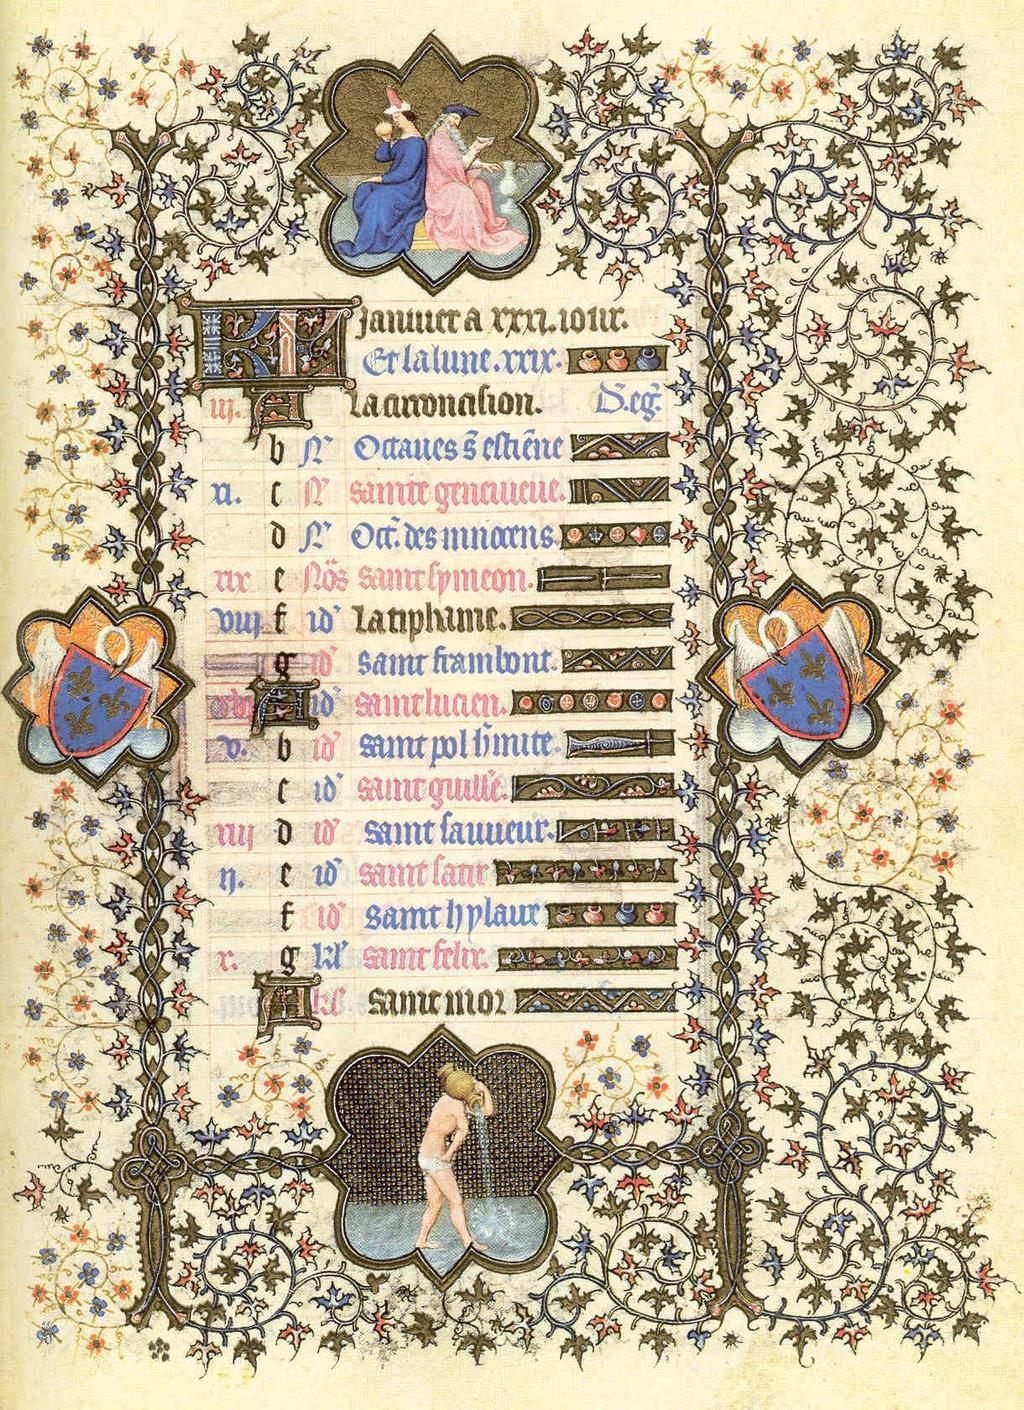 KL Januier a xxxi. iour.
Et la lune. xxix.
iii. A La circoncision. D. eg.
b N Octaues s estiene
xi. c N sainte geneuieue.
d N Oct. des innocens.
xix e Nos saint symeon.
viii f id La tiphaine.
g id saint frambout.
xvi A id saint lucien.
v. b id saint pol hmite.
c id saint guille.
xiii d id saint sauueur.
ii. e id saint satir
f id saint hylaire
x. g kl saint felix.
A kl saint mor